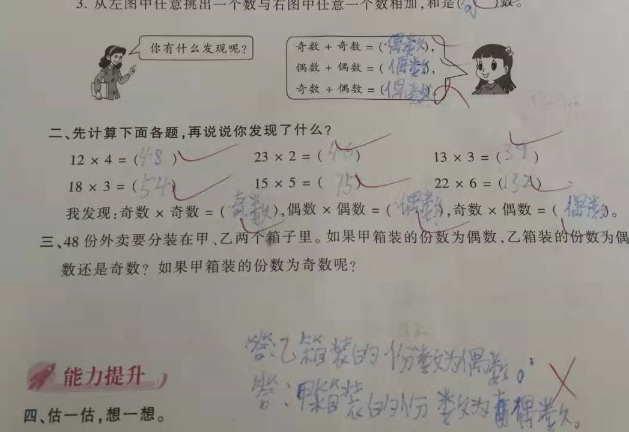 3. 从左图中任意挑出一个数与右图中任意一个数相加,和是( )数。
你有什么发现呢?
奇数 + 奇数 = (偶数),
偶数 + 偶数 = (偶数),
奇数 + 偶数 = (偶数)。
二、先计算下面各题,再说说你发现了什么?
12 × 4 = ( 48 ) 23 × 2 = ( 46 ) 13 × 3 = ( 39 )
18 × 3 = ( 54 ) 15 × 5 = ( 75 ) 22 × 6 = ( 132 )
我发现:奇数 × 奇数 = ( 奇数 ),偶数 × 偶数 = ( 偶数 ),奇数 × 偶数 = ( 偶数 )。
三、48 份外卖要分装在甲、乙两个箱子里。如果甲箱装的份数为偶数,乙箱装的份数为偶
数还是奇数?如果甲箱装的份数为奇数呢?
答:乙箱装的份数为偶数。
答:甲箱装的份数为偶数。
能力提升
四、估一估,想一想。